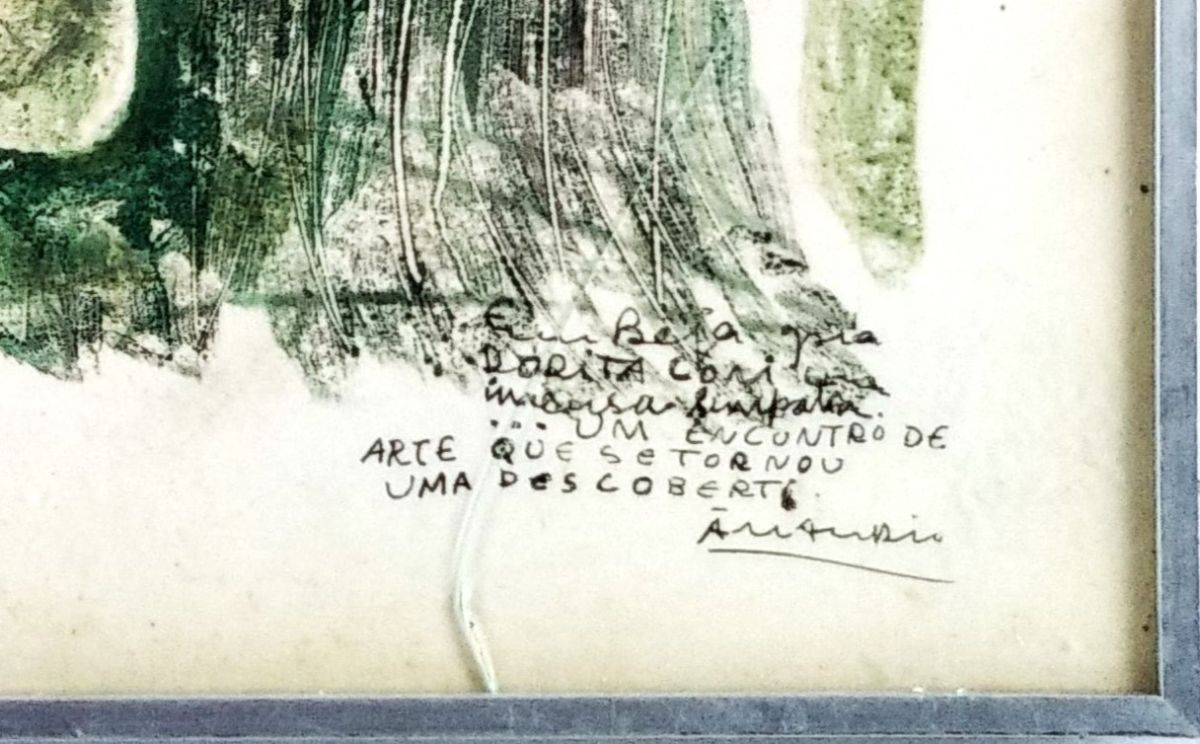 Em Beja pra
DORITA COM uma
imensa simpatia.
... UM ENCONTRO DE
ARTE QUE SE TORNOU
UMA DESCOBERTA.